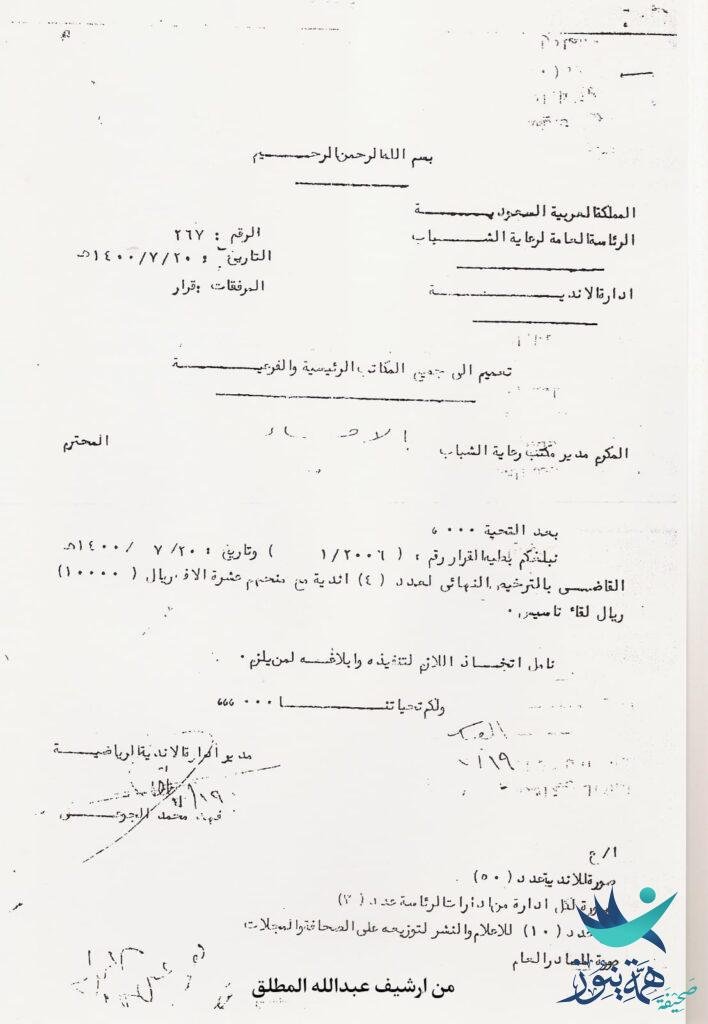 بسم الله الرحمن الرحيم
المملكة العربية السعودية
الرئاسة العامة لرعاية الشباب
ادارة الاندية
الرقم : ٢٦٧
التاريخ : ١٤٠٠/٧/٢٠هـ
المرفقات : قرار
تعميم الى جميع المكاتب الرئيسية والفرعية
المكرم مدير مكتب رعاية الشباب الاحساء المحترم
بعد التحية ٠٠٠ ،
نبلغكم بطيه القرار رقم : ( ١/٢٠٠٦ ) وتاريخ : ٧/٢٠ /١٤٠٠هـ
القاضي بالترخيص النهائي لعدد ( ٤ ) اندية مع منحهم عشرة الاف ريال ( ١٠٠٠٠ )
ريال لقاء تاسيس ٠
نامل اتخاذ اللازم لتنفيذه وابلاغه لمن يلزم ٠
ولكم تحياتنا ٠٠٠ ،،،
مدير ادارة الاندية الرياضية
فهد محمد
ا/ع
صورة للاندية عدد ( ٥٠ )
صورة لكل ادارة من ادارات الرئاسة عدد
عدد ( ١٠ ) للاعلام والنشر لتوزيعه على الصحافة والمجلات
صورة للصادر العام
من ارشيف عبدالله المطلق
صحيفة
همة نيوز